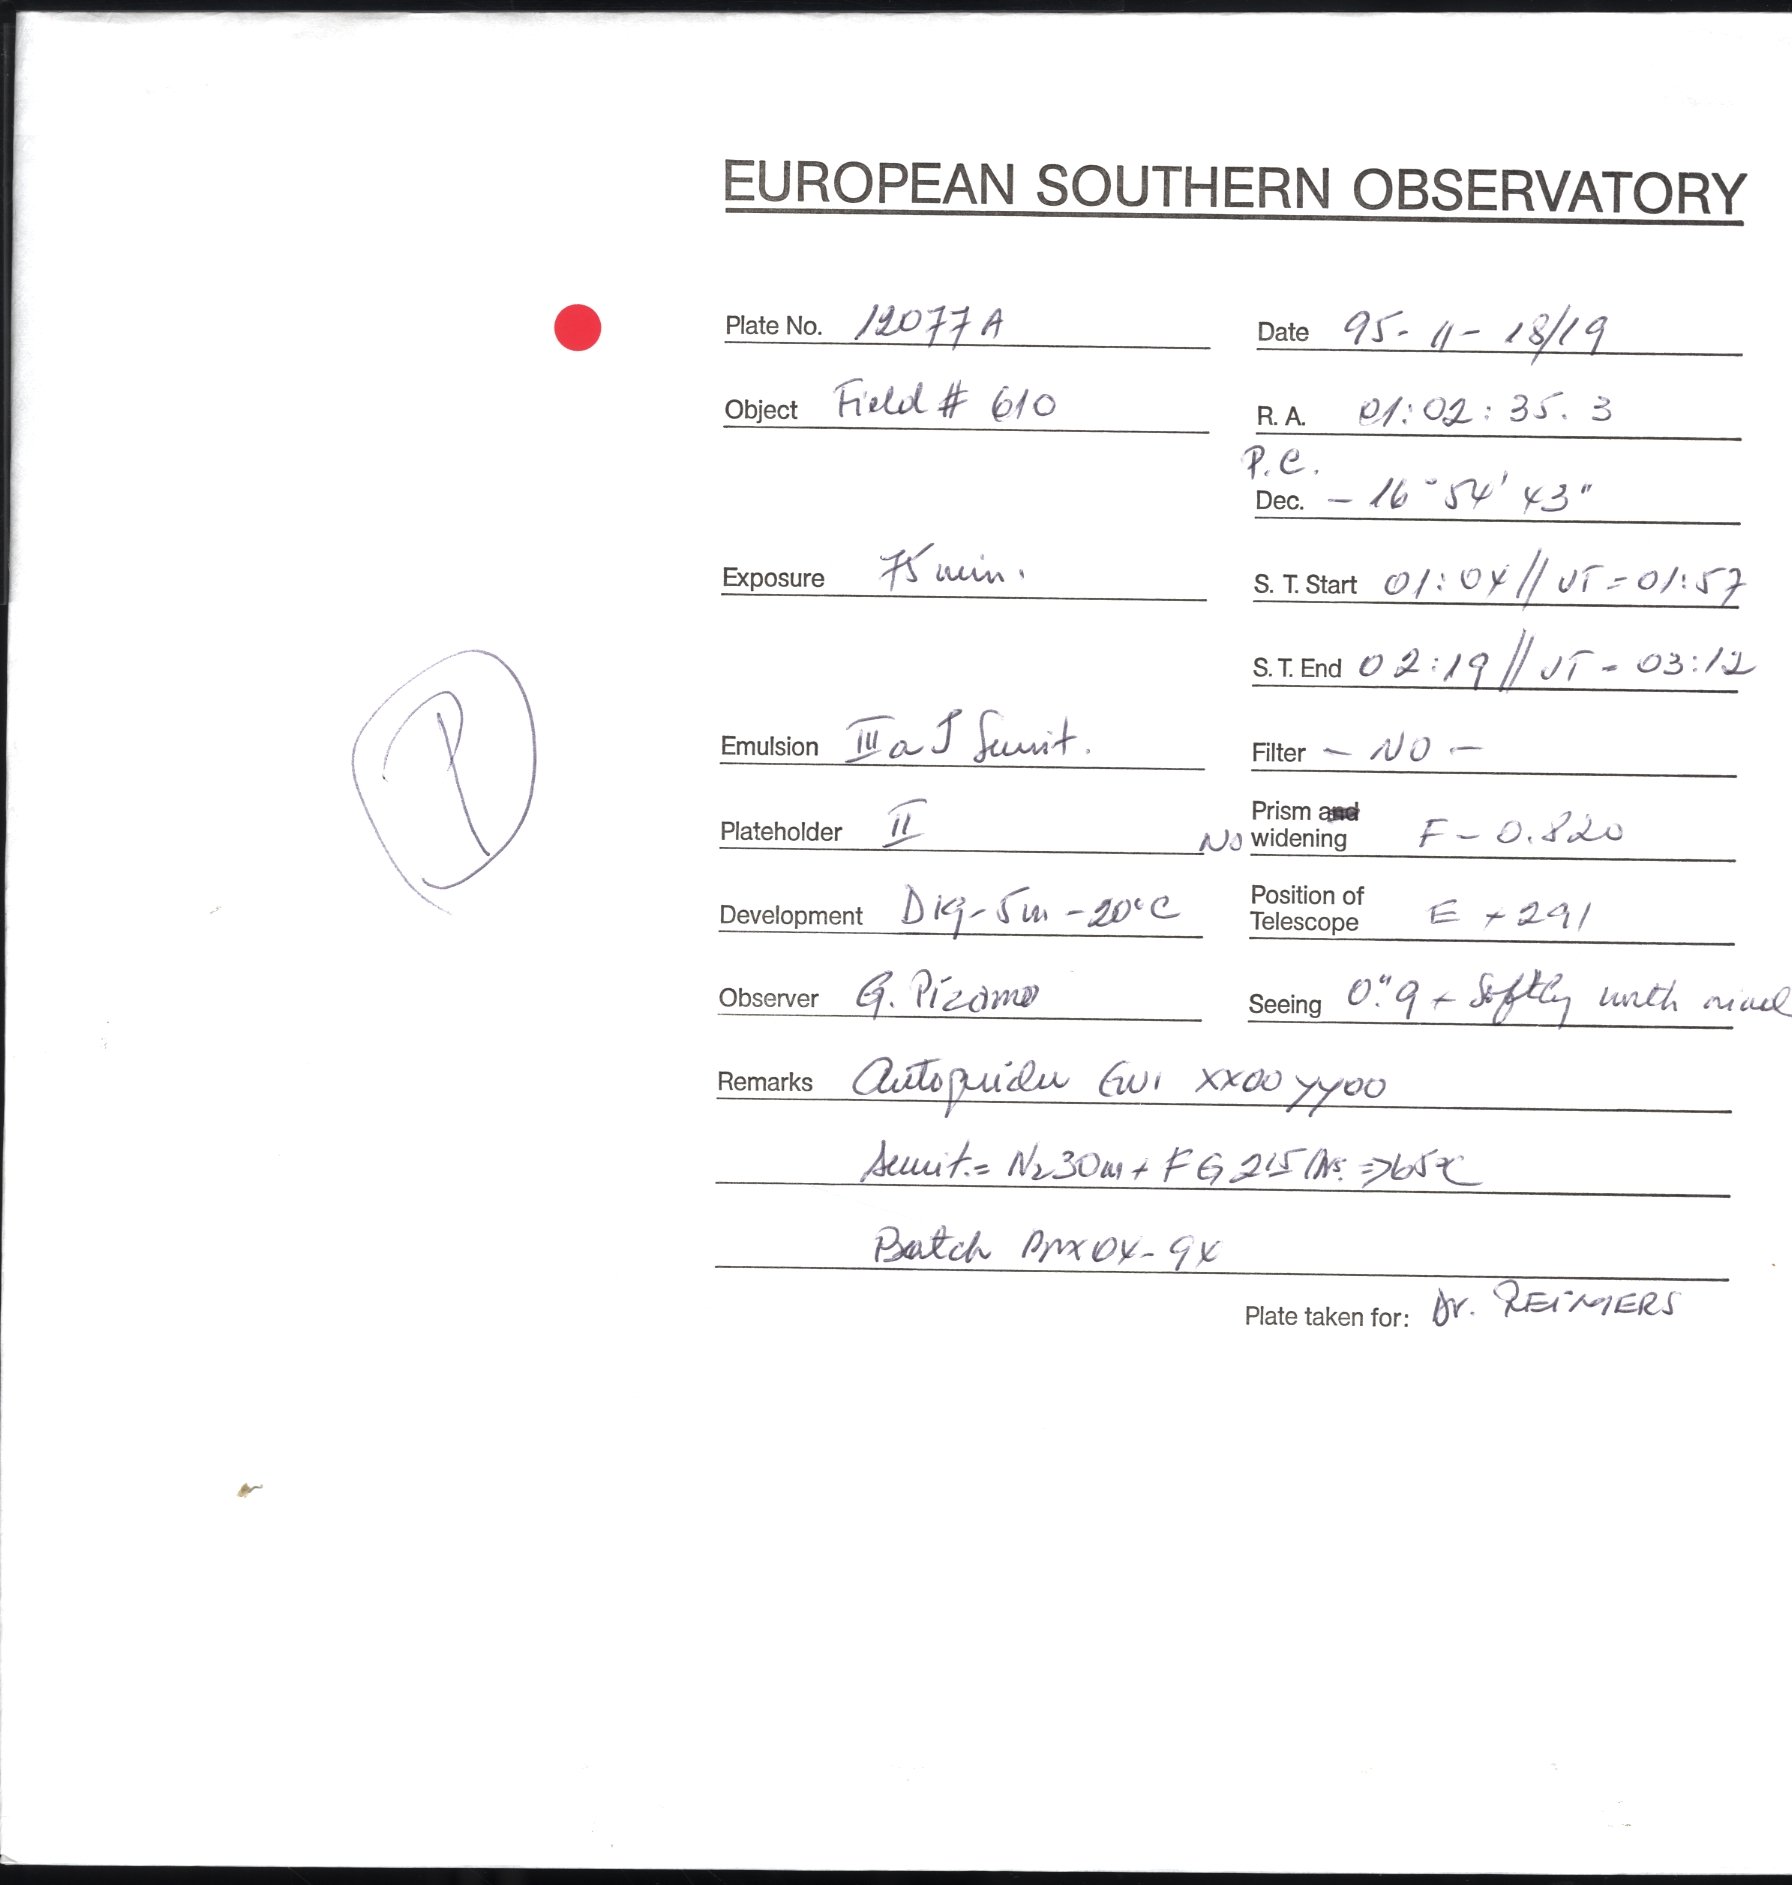 EUROPEAN SOUTHERN OBSERVATORY
Plate No. 12077A Date 95-11-18/19
Object Field # 610 R. A. 01:02:35.3
P.C.
Dec. - 16° 54' 43"
Exposure 75 min. S. T. Start 01:04 // UT = 01:57
S. T. End 02:19 // UT = 03:12
P
Emulsion III a J Sensit. Filter - NO -
Plateholder II No Prism and widening F - 0.820
Development D19 - 5m - 20°C Position of Telescope E + 291
Observer G. Pizarro Seeing 0".9 + Softly north wind
Remarks Autoguider GW1 XX00 YY00
Sensit. = N2 30m + FG 215 => 65°C
Batch 04-94
Plate taken for: Dr. REIMERS